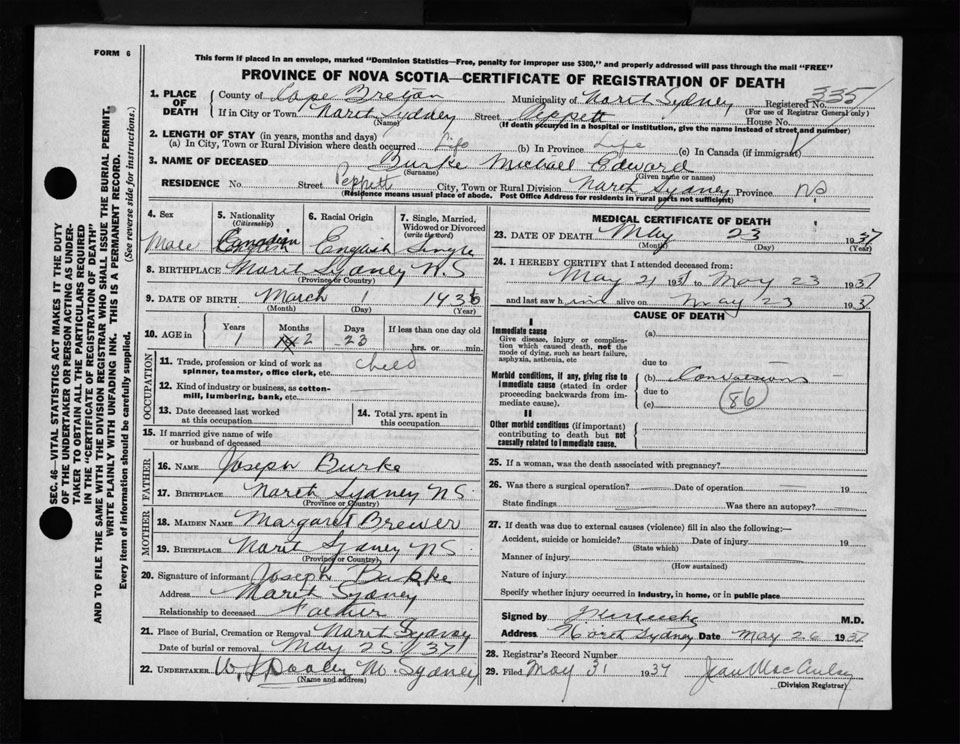 FORM 6
This form if placed in an envelope, marked "Dominion Statistics—Free, penalty for improper use $300," and properly addressed will pass through the mail "FREE"
PROVINCE OF NOVA SCOTIA—CERTIFICATE OF REGISTRATION OF DEATH
1. PLACE OF DEATH County of Cape Breton Municipality of North Sydney Registered No. 335
(For use of Registrar General only)
If in City or Town North Sydney Street Peppett House No.
(Name) (If death occurred in a hospital or institution, give the name instead of street and number)
2. LENGTH OF STAY (in years, months and days)
(a) In City, Town or Rural Division where death occurred Life (b) In Province Life (c) In Canada (if immigrant)
3. NAME OF DECEASED Burke Michael Edward
(Surname) (Given name or names)
RESIDENCE No. Street Peppett City, Town or Rural Division North Sydney Province NS
(Residence means usual place of abode. Post Office Address for residents in rural parts not sufficient)
4. Sex 5. Nationality (Citizenship) 6. Racial Origin 7. Single, Married, Widowed or Divorced (write the word)
Male Canadian English Single
8. BIRTHPLACE North Sydney N.S
(Province or Country)
9. DATE OF BIRTH March 1 1936
(Month) (Day) (Year)
10. AGE in Years Months Days If less than one day old
1 2 23 hrs. or min.
OCCUPATION
11. Trade, profession or kind of work as spinner, teamster, office clerk, etc. child
12. Kind of industry or business, as cotton-mill, lumbering, bank, etc.
13. Date deceased last worked at this occupation
14. Total yrs. spent in this occupation
15. If married give name of wife or husband of deceased
FATHER
16. NAME Joseph Burke
17. BIRTHPLACE North Sydney NS
(Province or Country)
MOTHER
18. MAIDEN NAME Margaret Brewer
19. BIRTHPLACE North Sydney NS
(Province or Country)
20. Signature of informant Joseph Burke
Address North Sydney
Relationship to deceased Father
21. Place of Burial, Cremation or Removal North Sydney
Date of burial or removal May 25 /37
22. UNDERTAKER W. J Dooley N. Sydney
(Name and address)
MEDICAL CERTIFICATE OF DEATH
23. DATE OF DEATH May 23 1937
(Month) (Day) (Year)
24. I HEREBY CERTIFY that I attended deceased from:
May 21 1937 to May 23 1937
and last saw him alive on May 23 1937
CAUSE OF DEATH
I
Immediate cause (a)
Give disease, injury or complication which caused death, not the mode of dying, such as heart failure, asphyxia, asthenia, etc
due to
Morbid conditions, if any, giving rise to immediate cause (stated in order proceeding backwards from immediate cause).
(b) Convulsions
due to
(c) 86
II
Other morbid conditions (if important) contributing to death but not causally related to immediate cause.
25. If a woman, was the death associated with pregnancy?
26. Was there a surgical operation? Date of operation 19
State findings Was there an autopsy?
27. If death was due to external causes (violence) fill in also the following:—
Accident, suicide or homicide? Date of injury 19
(State which)
Manner of injury
(How sustained)
Nature of injury
Specify whether injury occurred in industry, in home, or in public place
Signed by M.D.
Address North Sydney Date May 26 1937
28. Registrar's Record Number
29. Filed May 31 1937 Jean MacAulay
(Division Registrar)
SEC. 46—VITAL STATISTICS ACT MAKES IT THE DUTY
OF THE UNDERTAKER OR PERSON ACTING AS UNDER-
TAKER TO OBTAIN ALL THE PARTICULARS REQUIRED
IN THE "CERTIFICATE OF REGISTRATION OF DEATH"
AND TO FILE THE SAME WITH THE DIVISION REGISTRAR WHO SHALL ISSUE THE BURIAL PERMIT.
WRITE PLAINLY WITH UNFADING INK. THIS IS A PERMANENT RECORD.
Every item of information should be carefully supplied. (See reverse side for instructions.)